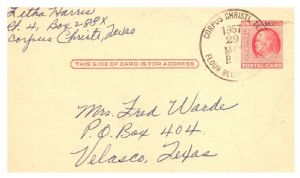 Letha Harris
Rt. 4, Box 298X
Corpus Christi, Texas
CORPUS CHRISTI
1951
29
FLOUR BL
POSTAL CARD
THIS SIDE OF CARD IS FOR ADDRESS
Mrs. Fred Warde
P.O. Box 404
Velasco, Texas